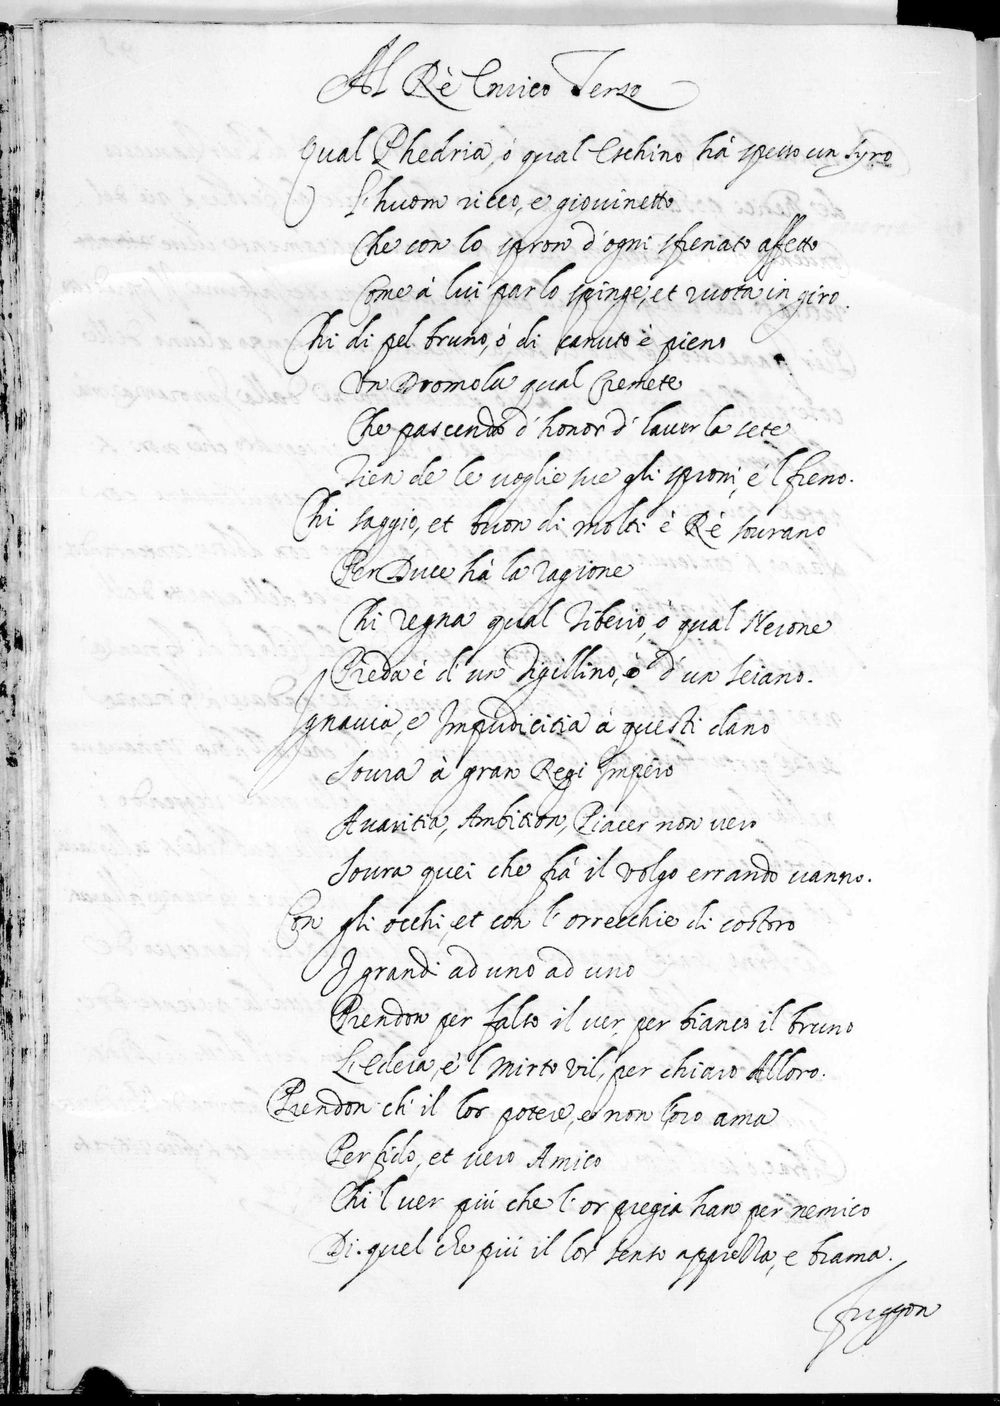 Al Rè Enrico Terzo
Qual Phedria, ó qual Eschino hà spesso un Syro
L'huom ricco, e giovinetto
Che con lo spron d'ogni sfrenato affetto
Come à lui par lo spinge, et ruota in giro.
Chi di pel bruno, ó di canuto è pieno
Un Dromola qual Cremete
Che pascendo d'honor d'haver la sete
Tien de le voglie sue gli sproni, e'l freno.
Chi saggio, et buon di molti è Rè sovrano
Per Duce hà la ragione
Chi regna qual Tiberio, ó qual Nerone
Preda è d'un Tigillino, ò d'un Seiano.
Ignavia, e Impudicitia à questi dano
Sovra à gran Regi Impero
Avaritia, Ambition, Piacer non vero
Sovra quei che frà il volgo errando vanno.
Con gli occhi, et con l'orrecchie di costoro
I grandi ad uno ad uno
Prendon per falso il ver, per bianco il bruno
L'Edera, e'l Mirto vil, per chiaro Alloro.
Prendon ch'il lor potere, e non loro ama
Per fido, et vero Amico
Chi'l ver più che l'or pregia han per nemico
Di quel che più il lor senso apprezza, e brama.
Fuggon